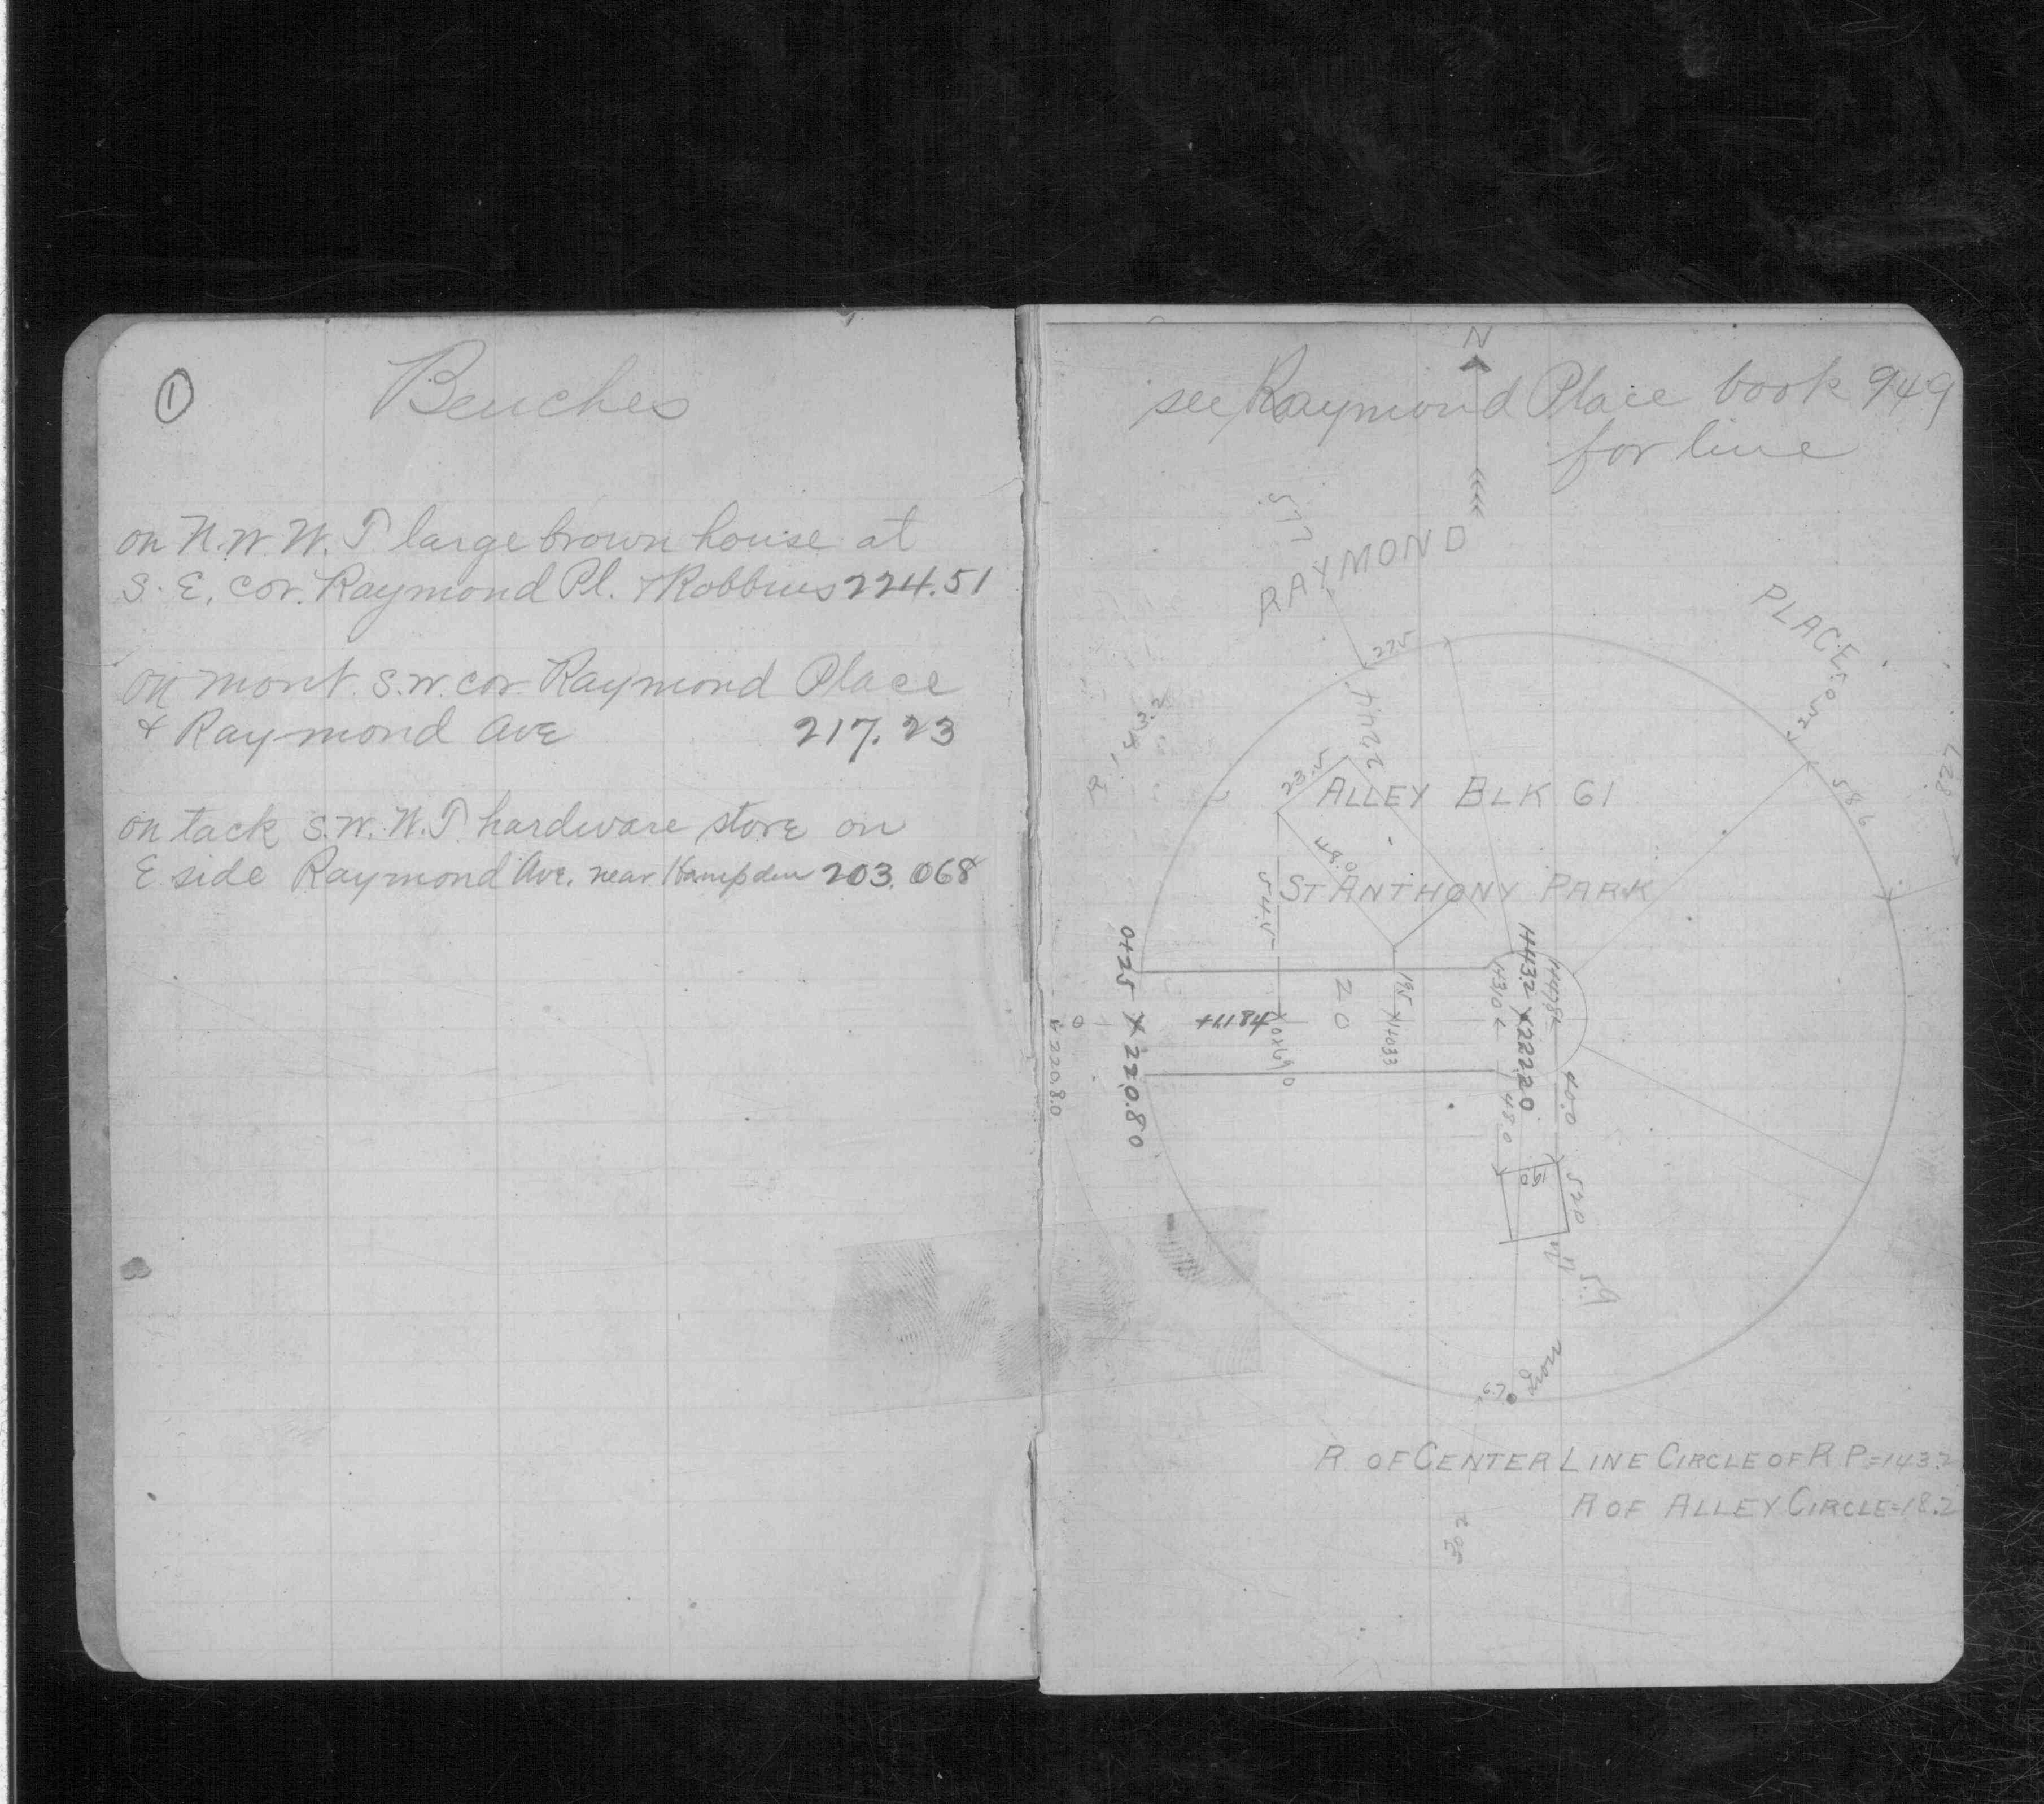 1
Benches
on N.W. W.T. large brown house at
S.E. cor. Raymond Pl. & Robbins 224.51
on mont. S.W. cor. Raymond Place
& Raymond Ave 217.23
on tack S.W. W.T. hardware store on
E. side Raymond Ave. near Hampden 203.068
N
see Raymond Place book 949
for line
RAYMOND
PLACE
27.5
R. 143.2
23.5
ALLEY BLK 61
58.6
82.7
48.0
ST ANTHONY PARK
54.5
0+25 X 220.80
220.80
0
20
1+43.2 X 222.20
40.0
48.0
52.0
R. OF CENTER LINE CIRCLE OF R.P.=143.2
R OF ALLEY CIRCLE=18.2